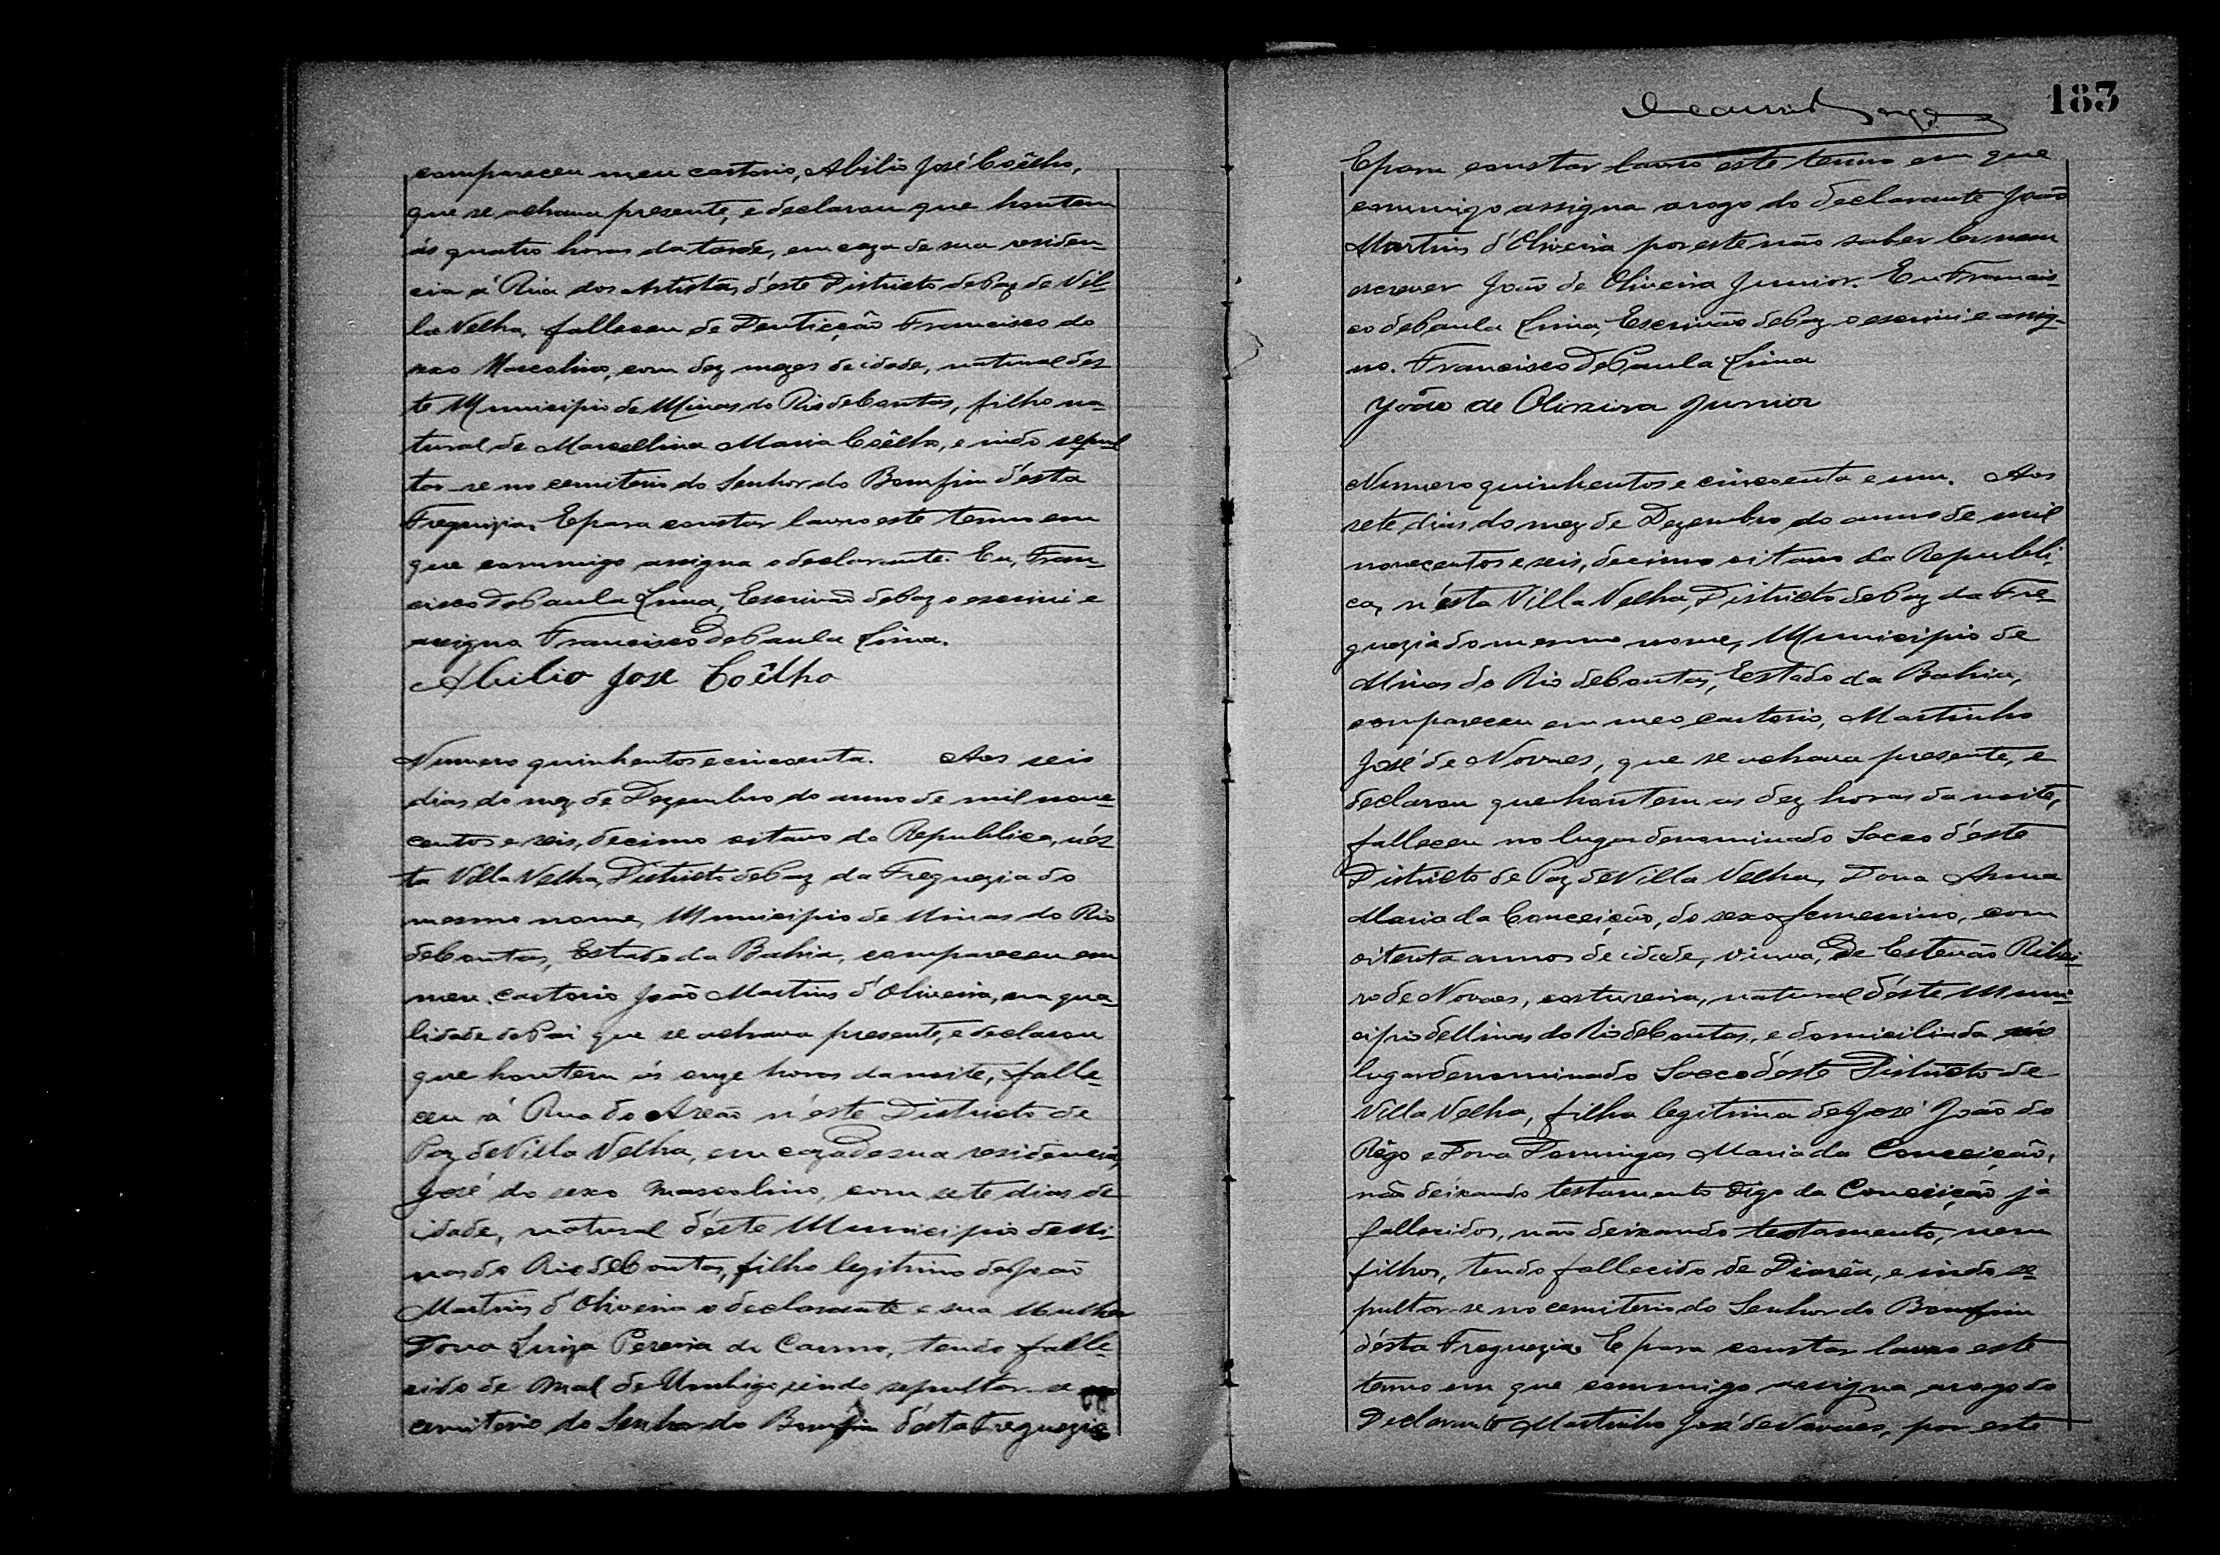 compareceu meu cartorio, Abilio José Coêlho,
que se achava presente, e declarou que hontem
ás quatro horas da tarde, em caza de sua residen
cia á Rua dos Artistas, d'este Districto de Paz de Vil-
la Velha, falleceu de Dentição Francisco do
sexo Mascolino, com dez mezes de idade, natural dés
te Municipio de Minas do Rio de Contas, filho na-
tural de Marcellina Maria Coêlho, e indo sepul
tar-se no cemiterio do Senhor do Bomfim d'ésta
Freguizia. E para constar lavro este termo em
que commigo assigna o declarante. Eu, Fran-
cisco De Paula Lima, Escrivão de Paz o escrivi e
assigno Francisco De Paula Lima.
Abilio José Coêlho
Numero quinhentos e cincoenta. Aos seis
dias do mez de Dezembro do anno de mil nove-
centos e seis, decimo oitavo da Republica, n'és
ta Villa Velha, Districto de Paz da Freguezia do
mesmo nome, Municipio de Minas do Rio
de Contas, Estado da Bahia, compareceu em
meu cartorio João Martins d'Oliveira, em qua-
lidade de Pai que se achava presente, e declarou
que hontem ás onze horas da noite, falle-
ceu á Rua do Areão n'este Districto de
Paz de Villa Velha, em caza de sua residencia,
José do sexo Mascolino, com sete dias de
idade, natural d'éste Municipio de Mi-
nas do Rio de Contas, filho legitimo de João
Martins d'Oliveira o declarante e sua Mulher
Dona Luiza Pereira do Carmo, tendo falle-
cido de Mal de Umbigo, e indo sepultar-se no
cemiterio do Senhor do Bomfim d'ésta Freguezia
183
E para constar lavro este termo em que
commigo assigna a rogo do declarante João
Martins d'Oliveira por este não saber ler nem
escrever João de Oliveira Junior. Eu Francis-
co de Paula Lima, Escrivão de Paz o escrivi e assig-
no. Francisco De Paula Lima
João de Olixeira Junior
Numero quinhentos e cincoenta e um. Aos
sete dias do mez de Dezembro do anno de mil
novecentos e seis, decimo oitavo da Republi-
ca, n'ésta Villa Velha, Districto de Paz da Fre-
guezia do mesmo nome, Municipio de
Minas do Rio de Contas, Estado da Bahia,
compareceu em meo cartorio, Martinho
José de Novaes, que se achava presente, e
declarou que hontem as dez horas da noite,
falleceu no lugar denominado Sacco d'éste
Districto de Paz de Villa Velha, Dona Anna
Maria da Conceição, do sexo femenino, com
oitenta annos de idade, viuva, de Estevão Ribei-
ro de Novaes, costureira, natural d'éste Muni-
cipio de Minas do Rio de Contas, e domiciliada no
lugar denominado Sacco d'éste Districto de
Villa Velha, filha legitima de José João do
Rêgo e Dona Domingas Maria da Conceição,
não deixando testamento digo da Conceição já
fallecidos, não deixando testamento, nem
filhos, tendo fallecido de Diarêa, e indo se
pultar-se no cemiterio do Senhor do Bomfim
d'ésta Freguezia. E para constar lavro este
termo em que commigo assigna a rogo do
Declarante Martinho José de Novaes, por este